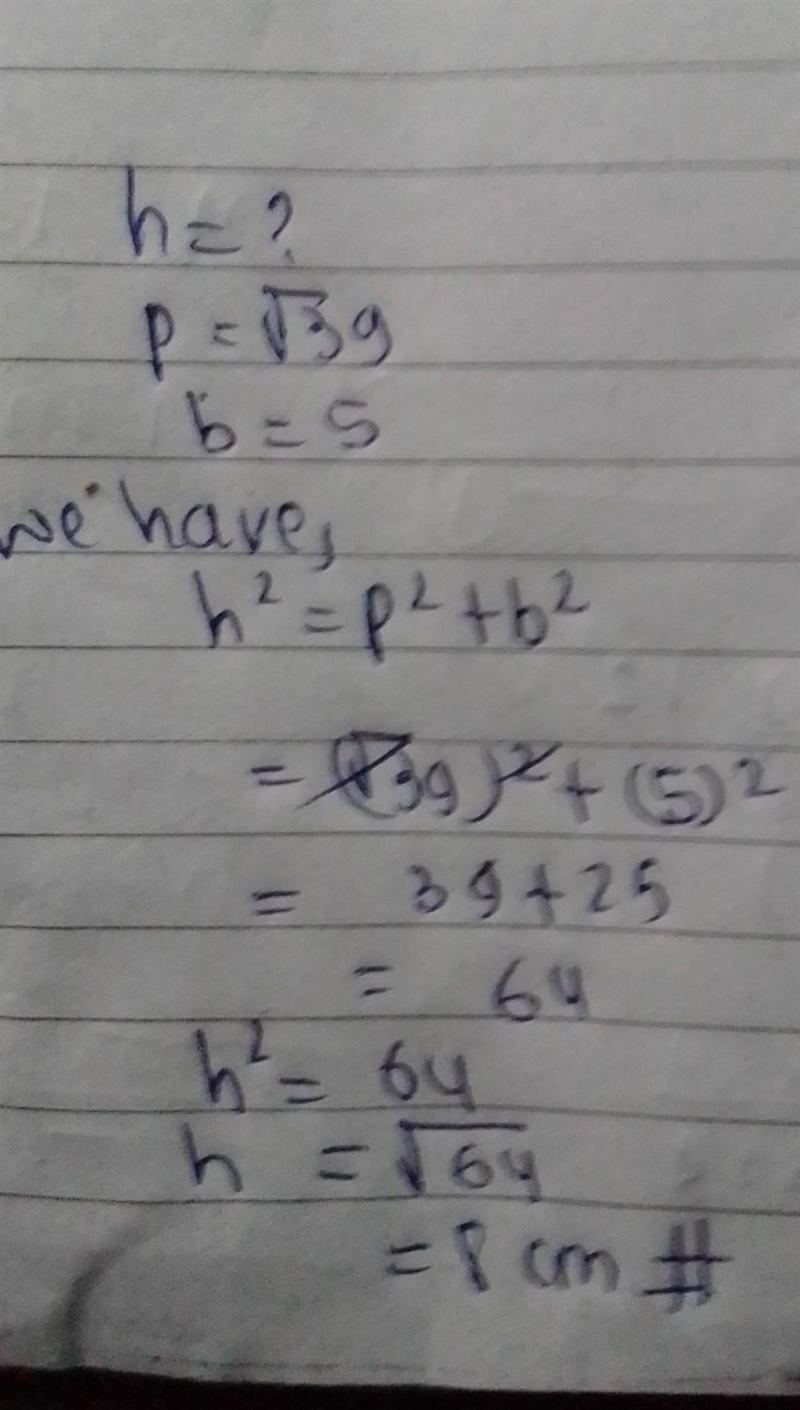 h = ?
p = √39
b = 5
we have,
h² = p² + b²
= (√39)² + (5)²
= 39 + 25
= 64
h² = 64
h = √64
= 8 cm #